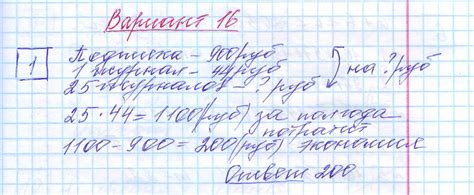 Вариант 16
1
Подписка – 900 руб
1 журнал – 44 руб
25 журналов – ? руб
на ? руб
25 · 44 = 1100 (руб) за полгода
потратит
1100 – 900 = 200 (руб) экономия
Ответ 200